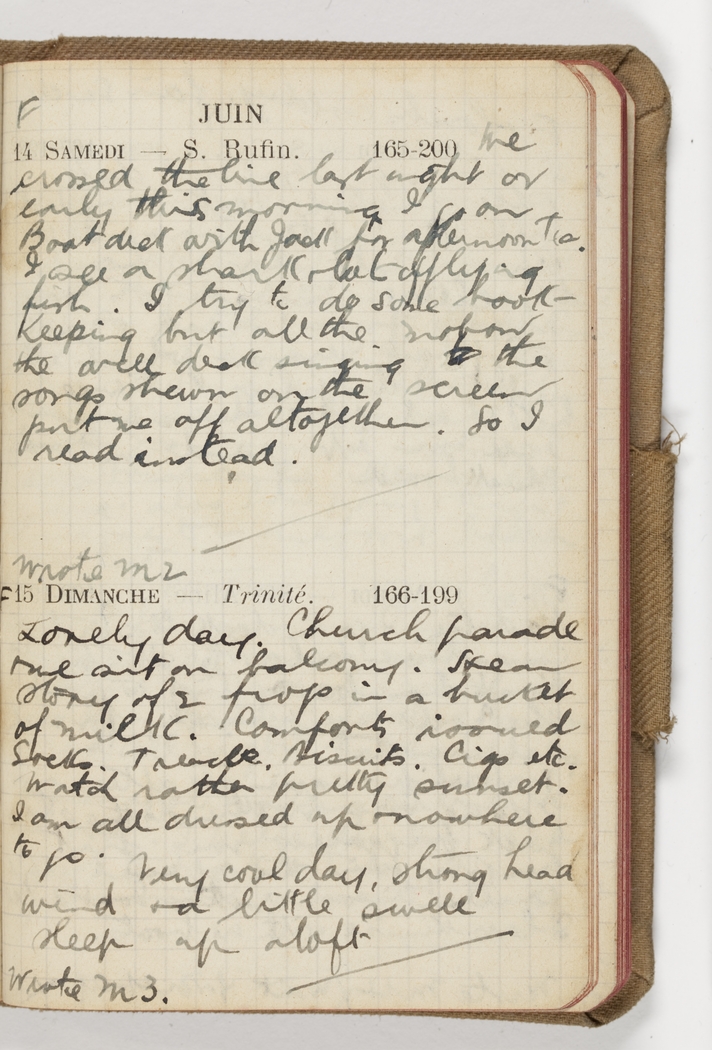 F JUIN
14 SAMEDI — S. Rufin. 165-200 We
crossed the line last night or
early this morning I go on
Boat deck with Jack for afternoon Tea.
I see a shark & lot of flying
fish. I try to do some book-
keeping but all the mob on
the well deck singing to the
songs shewn on the screen
put me off altogether. So I
read instead.
Wrote M2
F 15 DIMANCHE — Trinité. 166-199
Lonely day. Church parade
we sit on balcony. Hear
story of 2 frogs in a bucket
of milk. Comforts issued
Socks. Treacle. Biscuits. Cigs etc.
Watch rather pretty sunset.
I am all dressed up & nowhere
to go. Very cool day, strong head
wind & a little swell
sleep up aloft
Wrote M3.